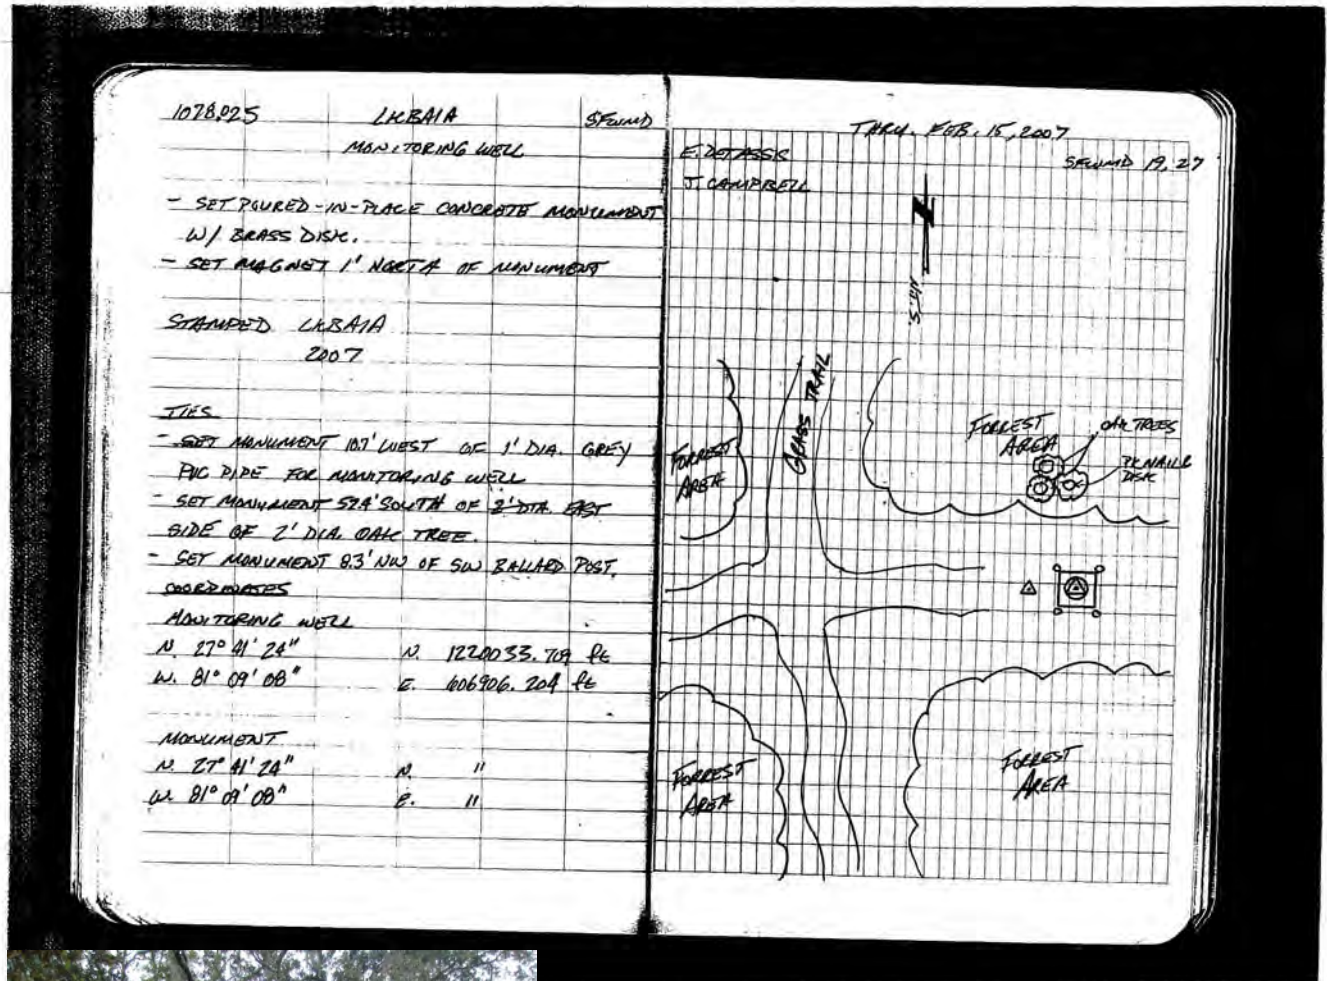 1078.025 LKBAIA SFWMD
MONITORING WELL
- SET POURED-IN-PLACE CONCRETE MONUMENT
W/ BRASS DISK.
- SET MAGNET 1' NORTH OF MONUMENT
STAMPED LKBAIA
2007
TIES
- SET MONUMENT 10.7' WEST OF 1' DIA. GREY
PVC PIPE FOR MONITORING WELL
- SET MONUMENT 52.4' SOUTH OF 2' DIA. EAST
SIDE OF 2' DIA. OAK TREE.
- SET MONUMENT 8.3' NW OF SW BALLARD POST.
COORDINATES
MONITORING WELL
N. 27° 41' 24" N. 1220033.709 ft
W. 81° 09' 08" E. 606906.204 ft
MONUMENT
N. 27° 41' 24" N. "
W. 81° 09' 08" E. "
THRU. FEB. 15, 2007
E. DETASSIS SFWMD 19, 27
J. CAMPBELL
N.T.S.
GRASS TRAIL
FORREST
AREA
FORREST
AREA
OAK TREES
PK NAIL &
DISK
FORREST
AREA
FORREST
AREA